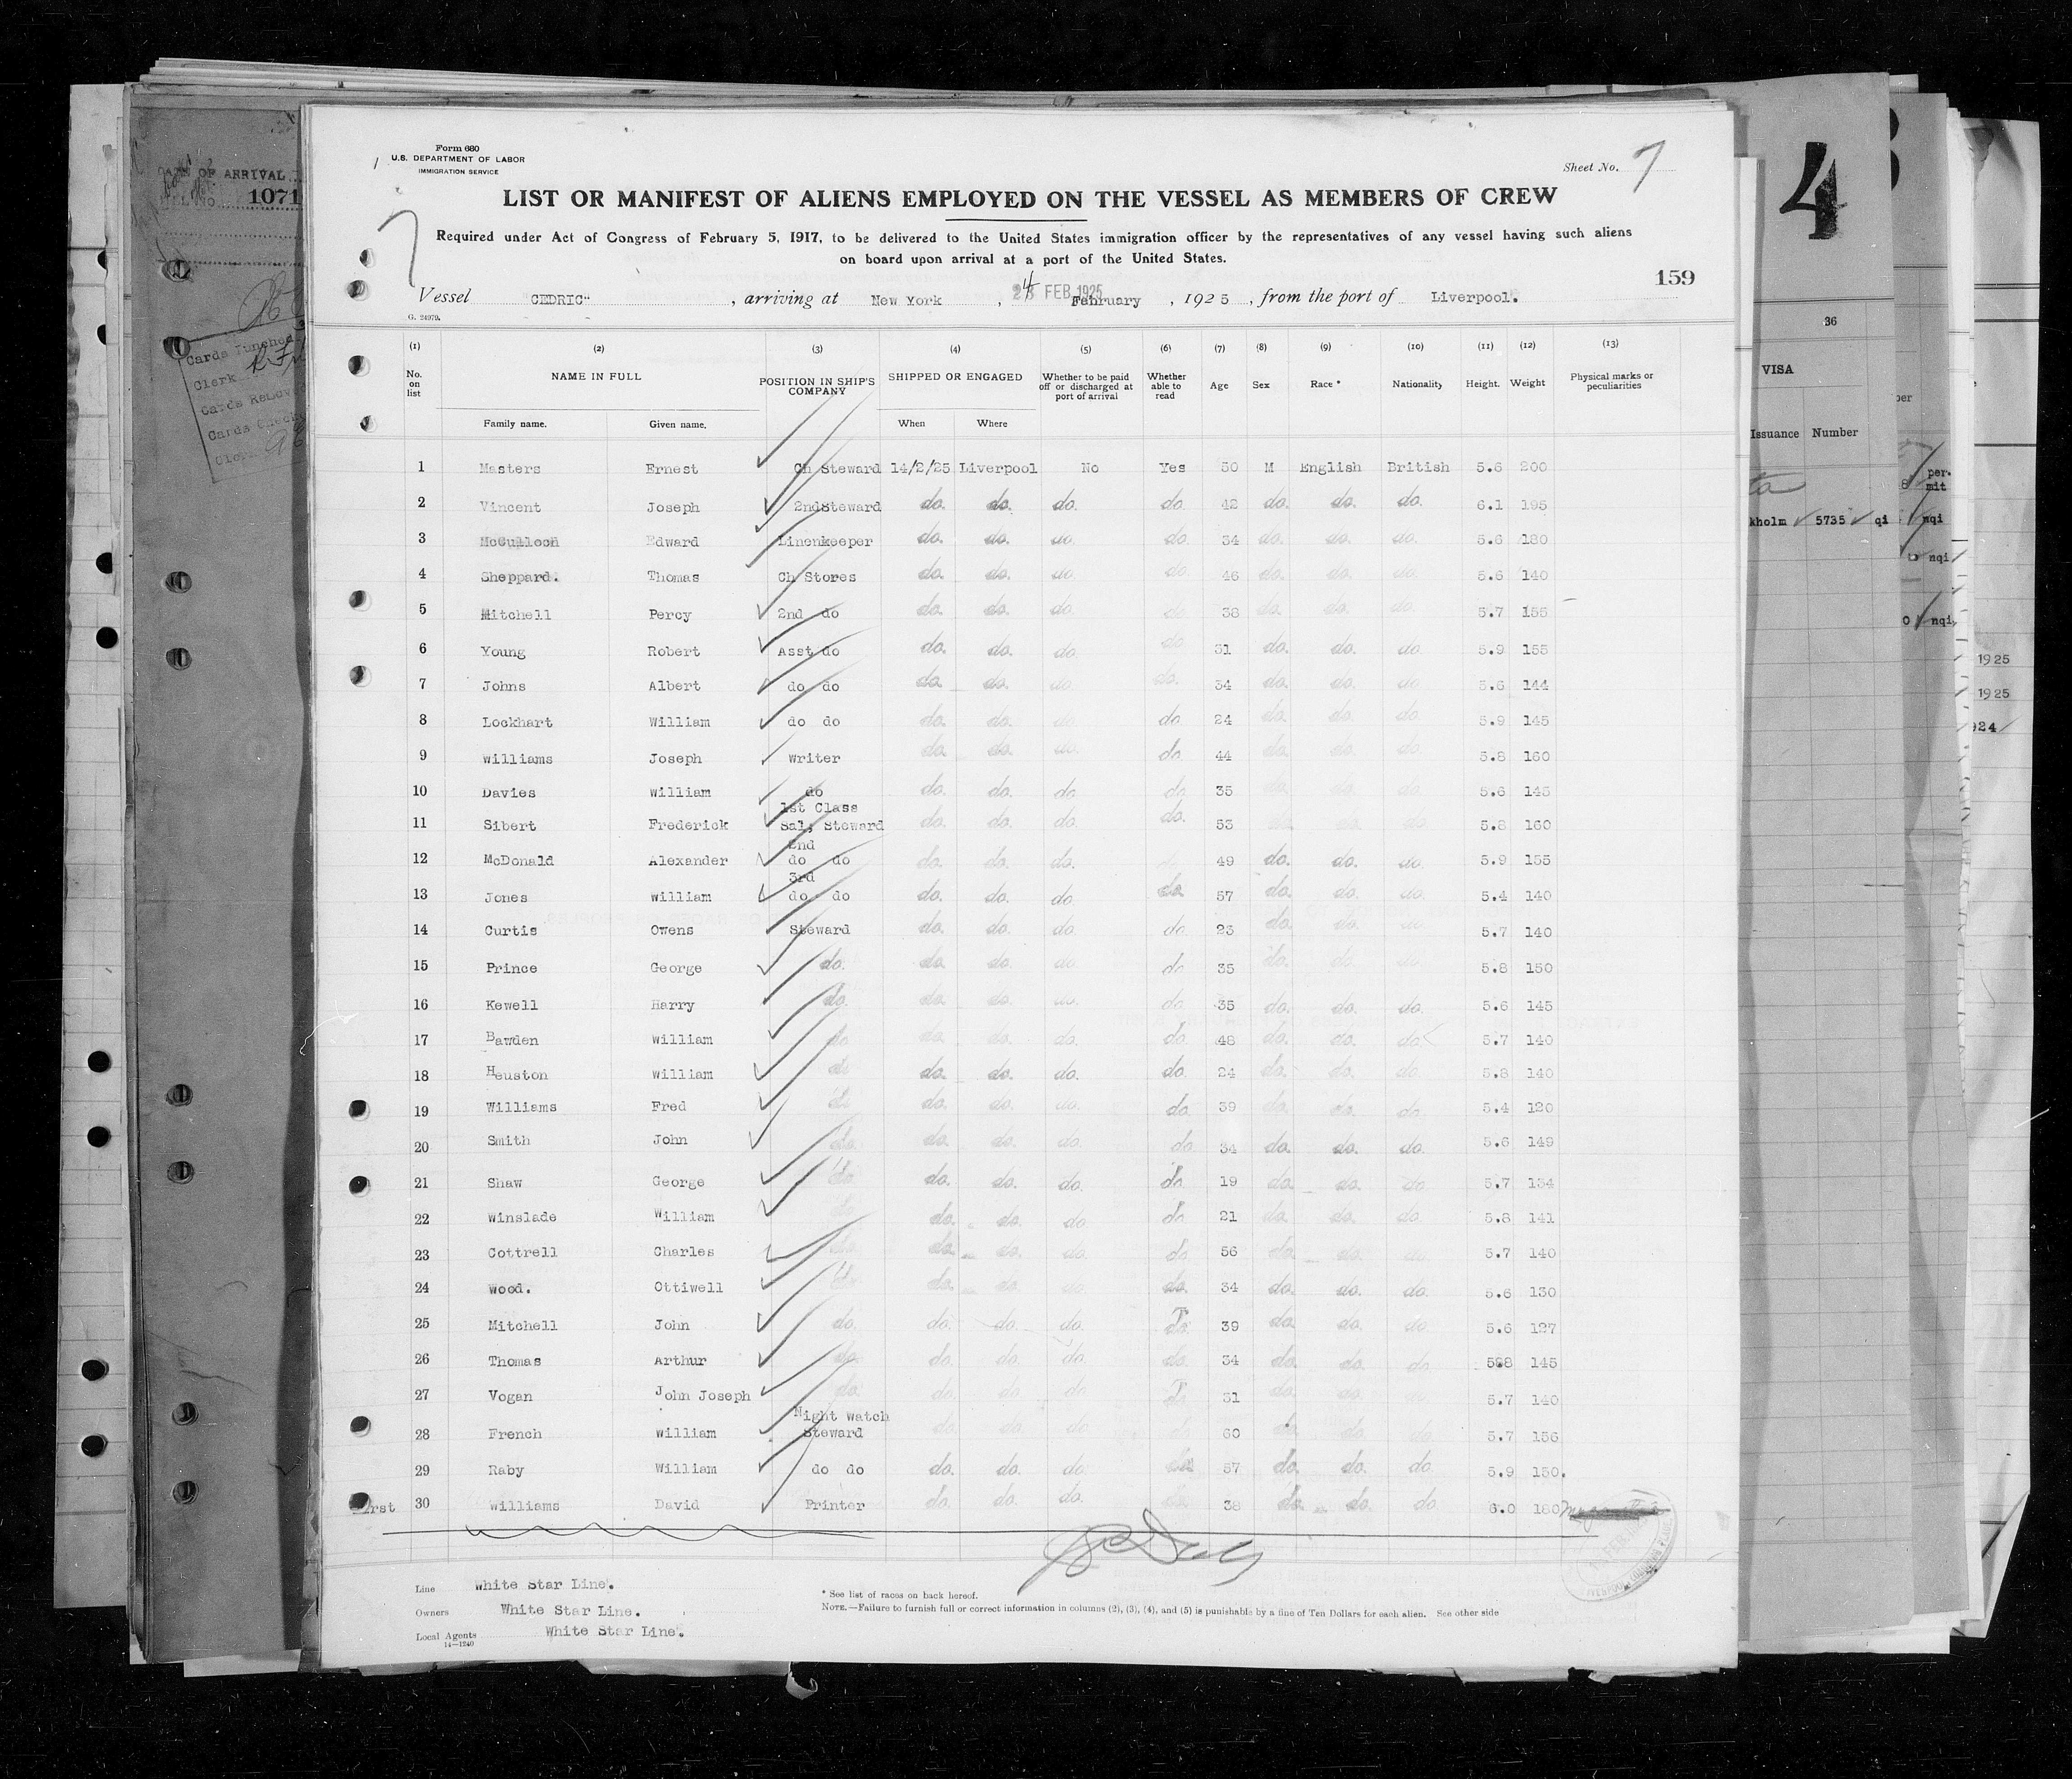 Form 680
U.S. DEPARTMENT OF LABOR
IMMIGRATION SERVICE
Sheet No. 7
LIST OR MANIFEST OF ALIENS EMPLOYED ON THE VESSEL AS MEMBERS OF CREW
Required under Act of Congress of February 5, 1917, to be delivered to the United States immigration officer by the representatives of any vessel having such aliens
on board upon arrival at a port of the United States.
159
Vessel CEDRIC" , arriving at New York , 24 FEB 1925 February , 1925 , from the port of Liverpool.
G. 24979.
(1) (2) (3) (4) (5) (6) (7) (8) (9) (10) (11) (12) (13)
No. on list NAME IN FULL POSITION IN SHIP'S COMPANY SHIPPED OR ENGAGED Whether to be paid off or discharged at port of arrival Whether able to read Age Sex Race * Nationality Height. Weight Physical marks or peculiarities
Family name. Given name. When Where
1 Masters Ernest Ch Steward 14/2/25 Liverpool No Yes 50 M English British 5.6 200
2 Vincent Joseph 2ndSteward do. do. do. do. 42 do. do. do. 6.1 195
3 McCulloch Edward Linenkeeper do. do. do. do. 34 do. do. do. 5.6 180
4 Sheppard. Thomas Ch Stores do. do. do. do. 46 do. do. do. 5.6 140
5 Mitchell Percy 2nd do do. do. do. do 38 do. do. do. 5.7 155
6 Young Robert Asst do do. do. do do 31 do. do. do 5.9 155
7 Johns Albert do do do. do. do do. 34 do. do. do 5.6 144
8 Lockhart William do do do. do. do do. 24 do. do. do. 5.9 145
9 Williams Joseph Writer do. do. do. do. 44 do. do. do. 5.8 160
10 Davies William do do. do. do do. 35 do. do. do. 5.6 145
11 Sibert Frederick 1st Class Sal; Steward do. do. do. do. 53 do. do. do. 5.8 160
12 McDonald Alexander 2nd do do do. do. do. do 49 do. do. do. 5.9 155
13 Jones William 3rd do do do. do. do do. 57 do. do. do. 5.4 140
14 Curtis Owens Steward do. do. do. do. 23 do. do. do. 5.7 140
15 Prince George do. do. do. do do 35 do. do. do. 5.8 150
16 Kewell Harry do. do. do. do. do 35 do. do. do. 5.6 145
17 Bawden William do do. do. do. do. 48 do. do. do 5.7 140
18 Heuston William do do. do. do. do. 24 do. do. do. 5.8 140
19 Williams Fred do do. do. do. do. 39 do. do. do. 5.4 120
20 Smith John do. do. do. do. do 34 do. do. do. 5.6 149
21 Shaw George do. do. do. do. do 19 do. do. do 5.7 134
22 Winslade William do. do. do. do do. 21 do. do. do. 5.8 141
23 Cottrell Charles do. do. do. do. do 56 do. do. do. 5.7 140
24 Wood. Ottiwell do. do. do do do. 34 do. do. do. 5.6 130
25 Mitchell John do. do. do. do. do. 39 do. do. do 5.6 127
26 Thomas Arthur do. do. do. do. do. 34 do. do. do 588 145
27 Vogan John Joseph do. do. do do 31 do. do. do 5.7 140
28 French William Night watch Steward do. do. do. do 60 do. do. do. 5.7 156
29 Raby William do do do. do. do do. 57 do. do. do. 5.9 150.
30 Williams David Printer do. do. do. do. 38 do. do. do. 6.0 180
Line White Star Line.
Owners White Star Line.
Local Agents White Star Line.
14—1240
* See list of races on back hereof.
NOTE.—Failure to furnish full or correct information in columns (2), (3), (4), and (5) is punishable by a fine of Ten Dollars for each alien. See other side
OF ARRIVAL
1071
Cards Punched
Clerk
4
36
VISA
Issuance Number
per-
mit
kholm 5735 qi nqi
nqi
nqi
1925
1925
924